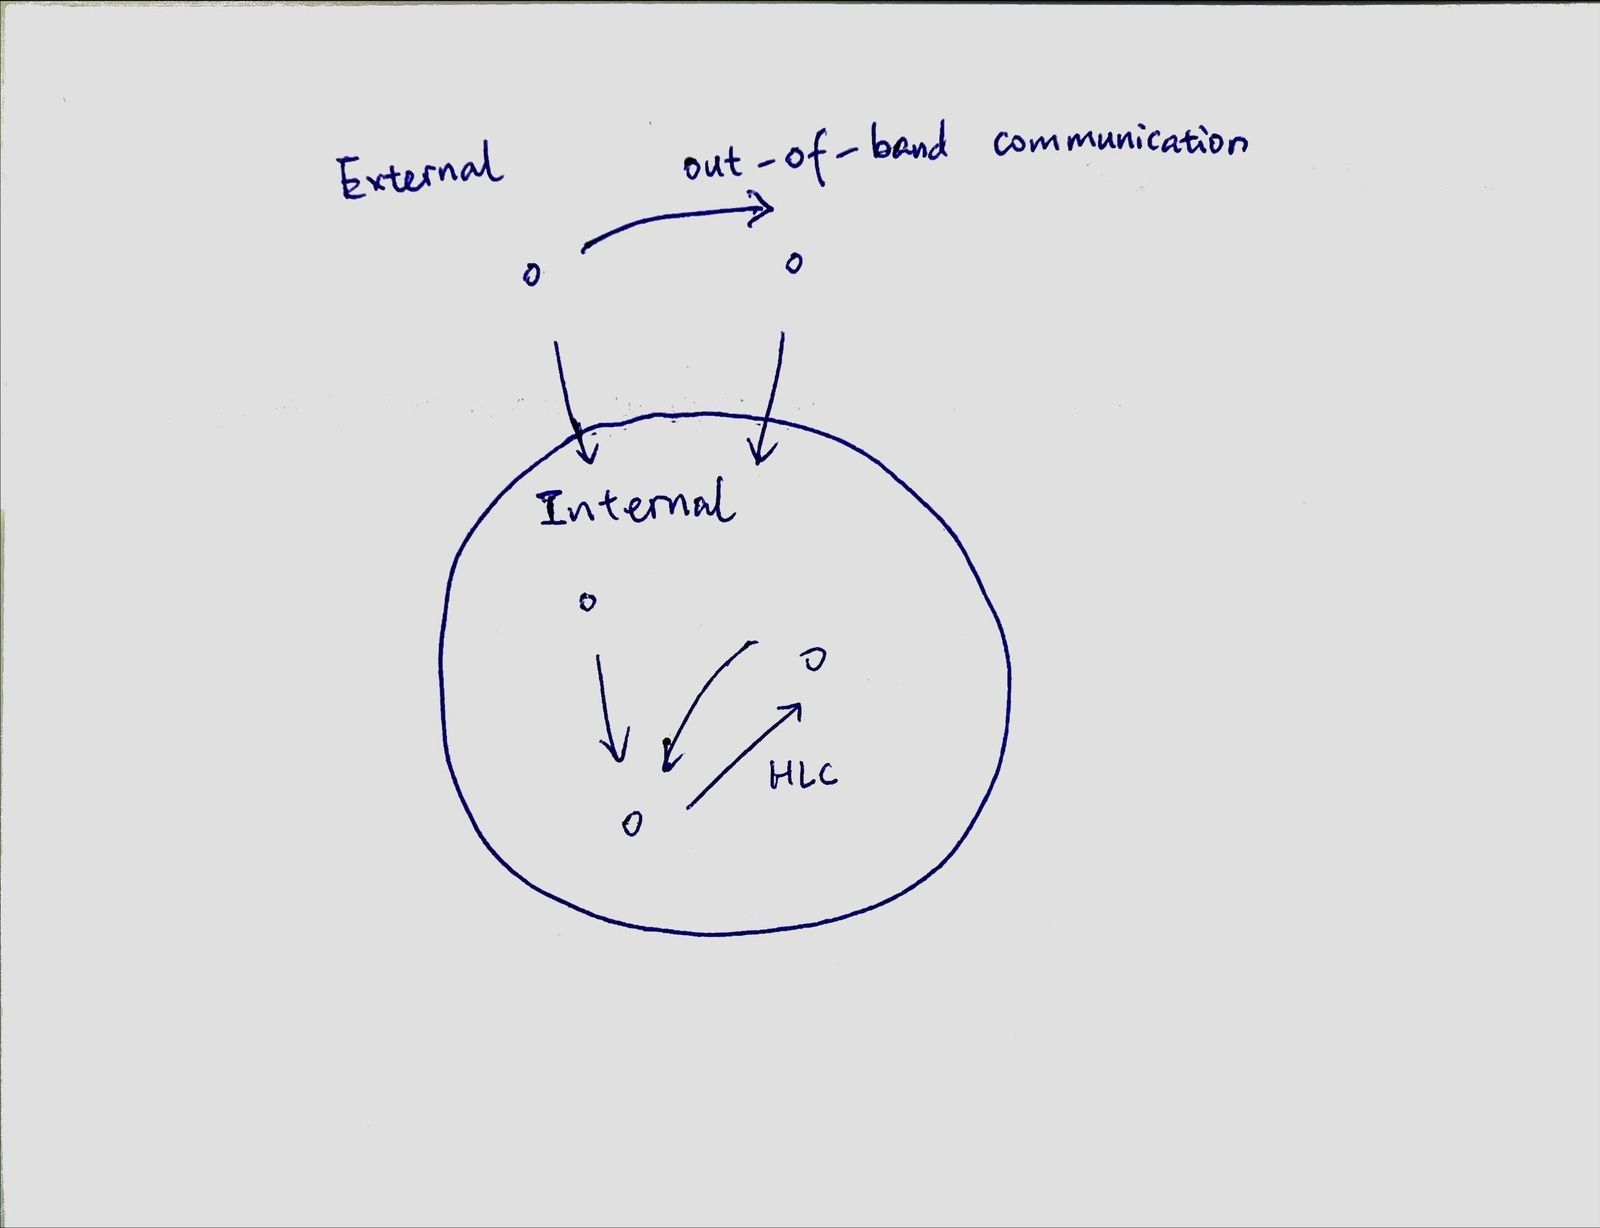 External out-of-band communication
Internal
HLC